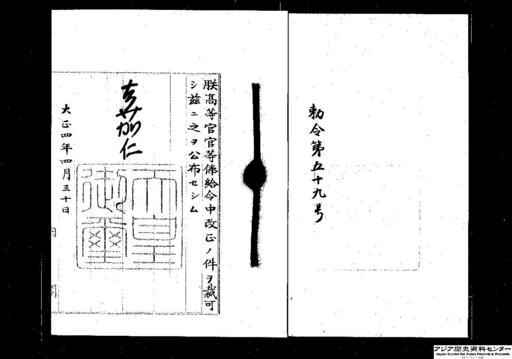 勅令第五十九号
朕高等官官等俸給令中改正ノ件ヲ裁可
シ茲ニ之ヲ公布セシム
嘉仁
天皇御璽
大正四年四月三十日
アジア歴史資料センター
Japan Center for Asian Historical Records